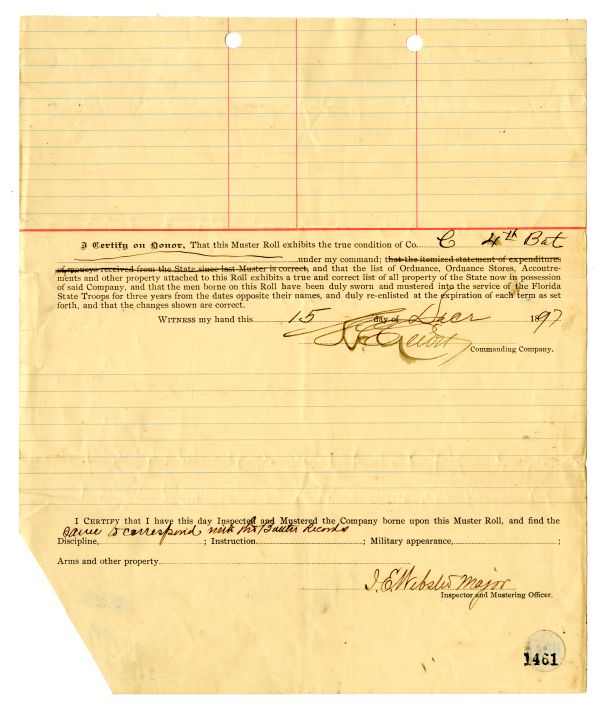 I Certify on Honor, That this Muster Roll exhibits the true condition of Co. C 4th Bat
under my command; that the itemized statement of expenditures
of moneys received from the State since last Muster is correct, and that the list of Ordnance, Ordnance Stores, Accoutre-
ments and other property attached to this Roll exhibits a true and correct list of all property of the State now in possession
of said Company, and that the men borne on this Roll have been duly sworn and mustered into the service of the Florida
State Troops for three years from the dates opposite their names, and duly re-enlisted at the expiration of each term as set
forth, and that the changes shown are correct.
Witness my hand this 15 day of Decr 1897
Commanding Company.
I Certify that I have this day Inspected and Mustered the Company borne upon this Muster Roll, and find the
same to correspond with the Records
Discipline, ; Instruction, ; Military appearance, ;
Arms and other property
J. E. Webster Major
Inspector and Mustering Officer.
1461